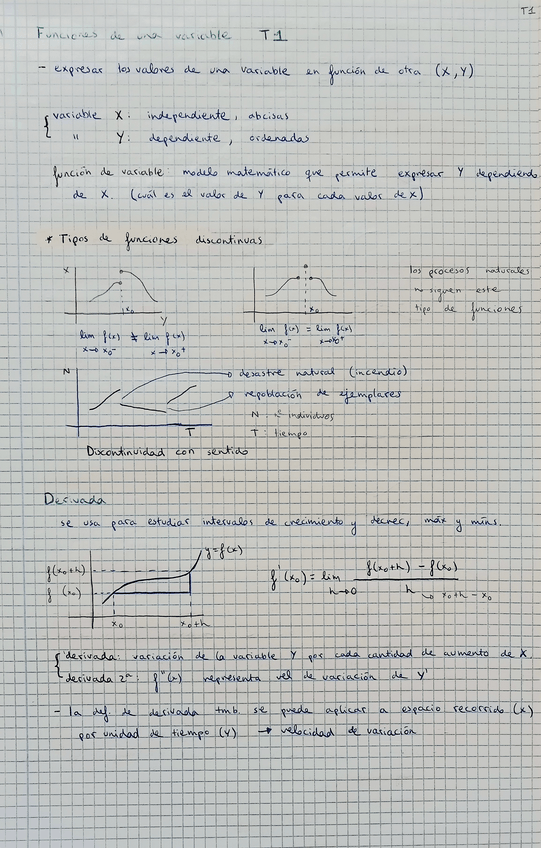 T1
Funciones de una variable T1
- expresar los valores de una variable en función de otra (X,Y)
variable X: independiente, abcisas
" Y: dependiente, ordenadas
función de variable: modelo matemático que permite expresar Y dependiendo
de X. (cuál es el valor de Y para cada valor de X)
* Tipos de funciones discontinuas
X
x₀
Y
lim f(x) ≠ lim f(x)
x→x₀⁻ x→x₀⁺
x₀
lim f(x) = lim f(x)
x→x₀⁻ x→x₀⁺
los procesos naturales
no siguen este
tipo de funciones
N
T
desastre natural (incendio)
repoblación de ejemplares
N: nº individuos
T: tiempo
Discontinuidad con sentido
Derivada
se usa para estudiar intervalos de crecimiento y decrec, máx y míns.
y=f(x)
f(x₀+h)
f(x₀)
x₀ x₀+h
f'(x₀) = lim f(x₀+h) - f(x₀)
h→0 h → x₀+h - x₀
derivada: variación de la variable Y por cada cantidad de aumento de X.
derivada 2ª: f''(x) representa vel de variación de y'
- la def. de derivada tmb. se puede aplicar a espacio recorrido (x)
por unidad de tiempo (Y) → velocidad de variación